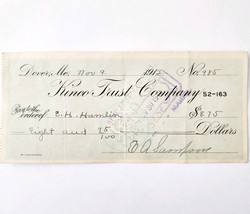 Dover, Me. Nov 9 1915 No. 985
Kineo Trust Company 52-163
Pay to the order of E. H. Hamlin $8.75
Eight and 75/100 Dollars